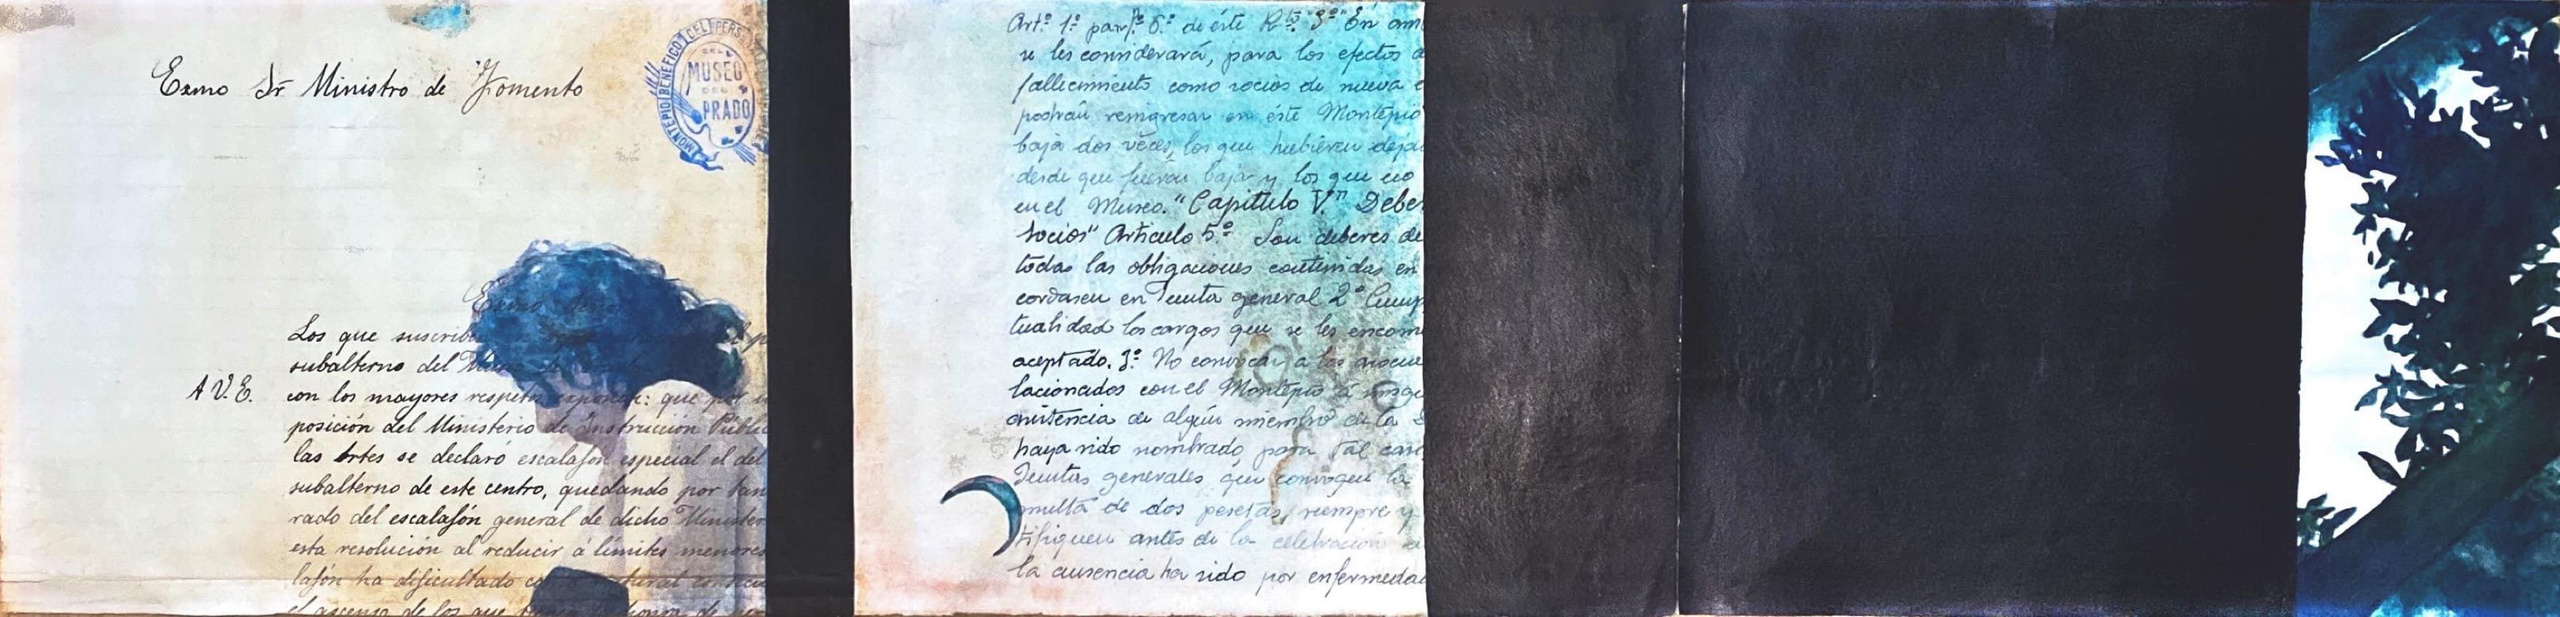 Exmo Sr Ministro de Fomento
MONTEPIO BENEFICO DEL PERS
DEL
MUSEO
DEL
PRADO
Exmo
Los que suscrib
subalterno del
A V.E.
con los mayores respetos exponen: que por
posición del Ministerio de Instrucción Públic
las Artes se declaró escalafón especial el del
subalterno de este centro, quedando por tan
rado del escalafón general de dicho Minister
esta resolución al reducir á límites menores
lafón ha dificultado natural
el ascenso de los que honra de
Artº 1º parfº 6º de éste Rtº "3º En am
se les considerará, para los efectos d
fallecimiento como socios de nueva e
podrán reingresar en éste Montepio
baja dos veces, los que hubieren dejad
desde que fueron baja y los que no
en el Museo. "Capitulo V." Deber
Socios" Articulo 5º Son deberes de
todas las obligaciones contenidas en
cordasen en Junta general 2º Cump
tualidad los cargos que se les encom
aceptado. 3º No convocar a los asocia
lacionados con el Montepio á ningu
asistencia de algún miembro de la
haya sido nombrado, para tal caso
Juntas generales que convoque la
multa de dos pesetas, siempre y
tifiquen antes de la celebración
la ausencia ha sido por enfermedad